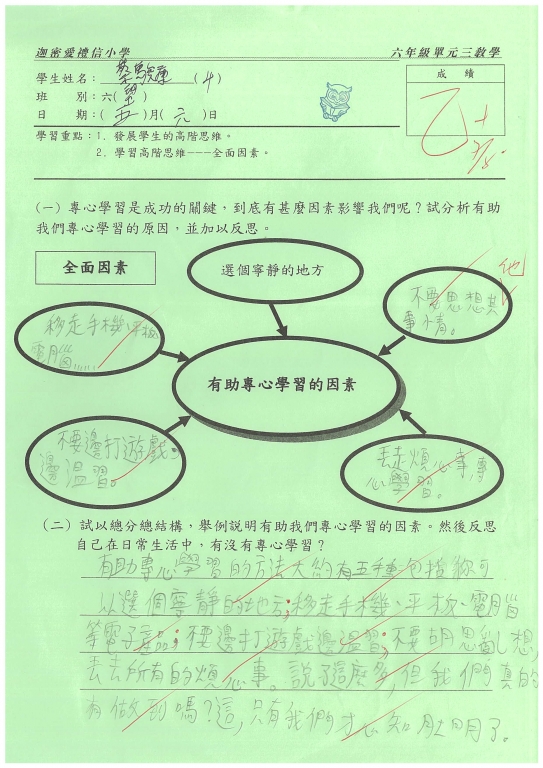 迦密愛禮信小學
六年級單元三教學
學生姓名：(4)
班 別：六(望)
日 期：(五)月(元)日
成 績
乙+
學習重點：1. 發展學生的高階思維。
2. 學習高階思維---全面因素。
(一) 專心學習是成功的關鍵，到底有甚麼因素影響我們呢？試分析有助
我們專心學習的原因，並加以反思。
全面因素
選個寧靜的地方
不要思想其他
事情。
移走手機、平板
電腦……
有助專心學習的因素
不要邊打遊戲
邊溫習。
丟走煩心事,專
心學習。
(二) 試以總分總結構，舉例說明有助我們專心學習的因素。然後反思
自己在日常生活中，有沒有專心學習？
有助專心學習的方法大約有五種包括你可
以選個寧靜的地方；移走手機、平板、電腦
等電子產品；不要邊打遊戲邊溫習；不要胡思亂想，
丟去所有的煩心事。說了這麼多，但我們真的
有做到嗎？這，只有我們才心知肚明了。